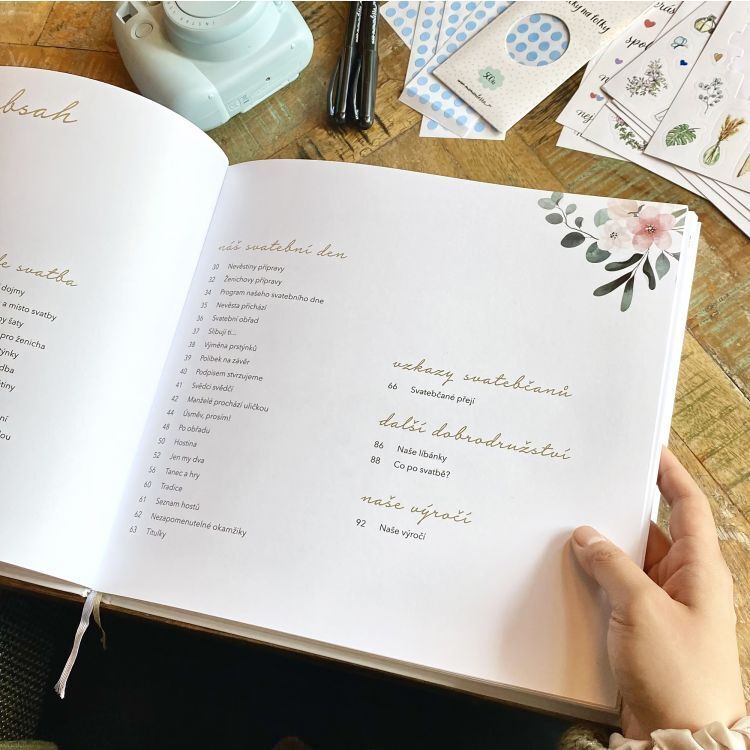 instax
dojmy
a místo svatby
šaty
pro ženicha
náš svatební den
30 Nevěstiny přípravy
32 Ženichovy přípravy
34 Program našeho svatebního dne
35 Nevěsta přichází
36 Svatební obřad
37 Slibuji ti...
38 Výměna prstýnků
39 Polibek na závěr
40 Podpisem stvrzujeme
41 Svědci svědčí
42 Manželé prochází uličkou
44 Úsměv, prosím!
48 Po obřadu
50 Hostina
52 Jen my dva
56 Tanec a hry
60 Tradice
61 Seznam hostů
62 Nezapomenutelné okamžiky
63 Titulky
vzkazy svatebčanů
66 Svatebčané přejí
další dobrodružství
86 Naše líbánky
88 Co po svatbě?
naše výročí
92 Naše výročí